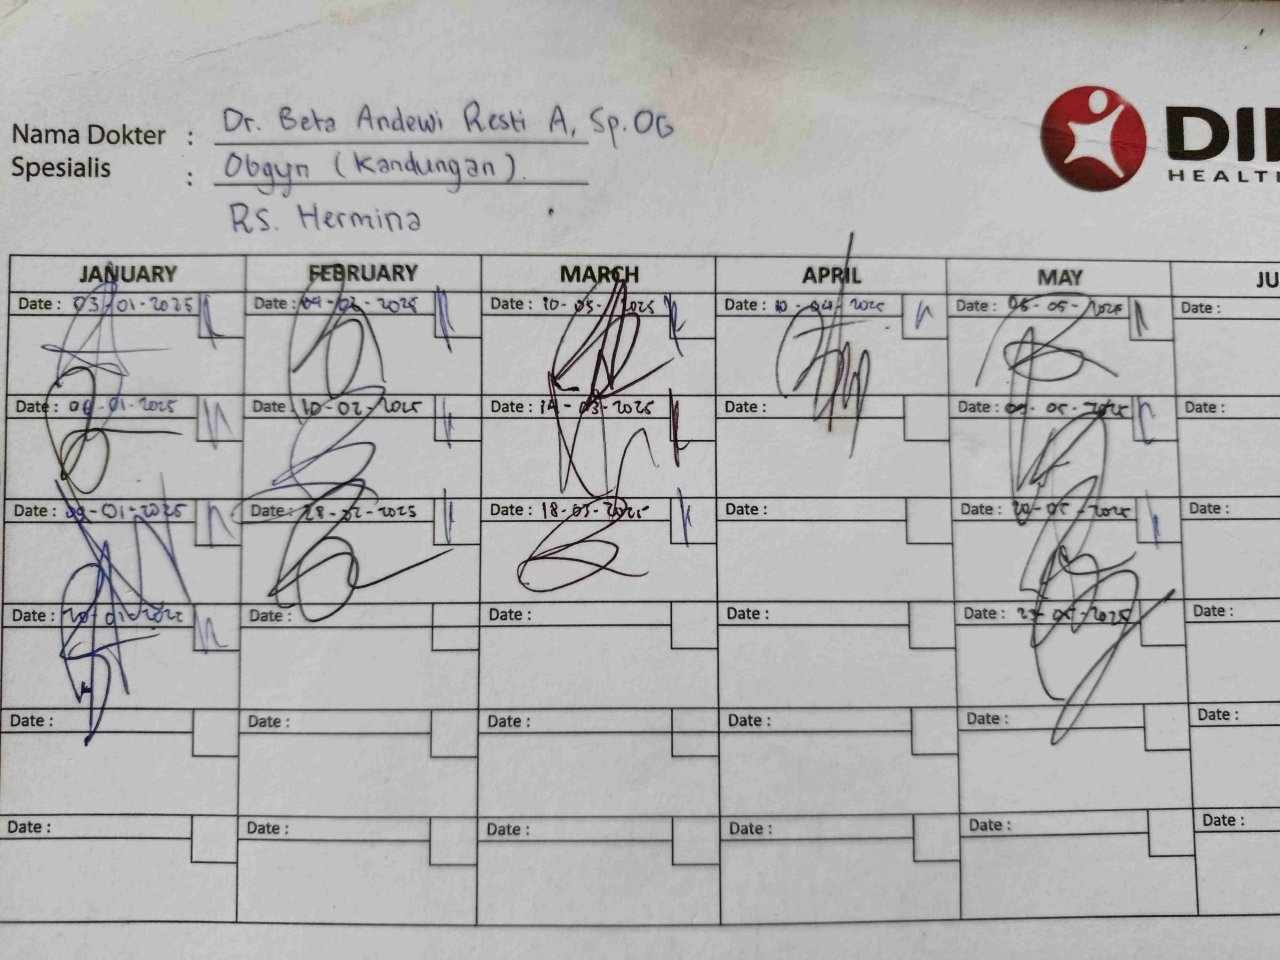 Nama Dokter : Dr. Beta Andewi Resti A, Sp.OG
Spesialis : Obgyn (Kandungan)
RS. Hermina
HEALTH
JANUARY FEBRUARY MARCH APRIL MAY
Date : 03-01-2025 Date : 04-02-2025 Date : 10-03-2025 Date : 10-04-2025 Date : 05-05-2025 Date :
Date : -01-2025 Date : 10-02-2025 Date : 14-03-2025 Date : Date : -05-2025 Date :
Date : 09-01-2025 Date : 28-02-2025 Date : 18-03-2025 Date : Date : 20-05-2025 Date :
Date : 20-01-2025 Date : Date : Date : Date : 23-05-2025 Date :
Date : Date : Date : Date : Date : Date :
Date : Date : Date : Date : Date : Date :